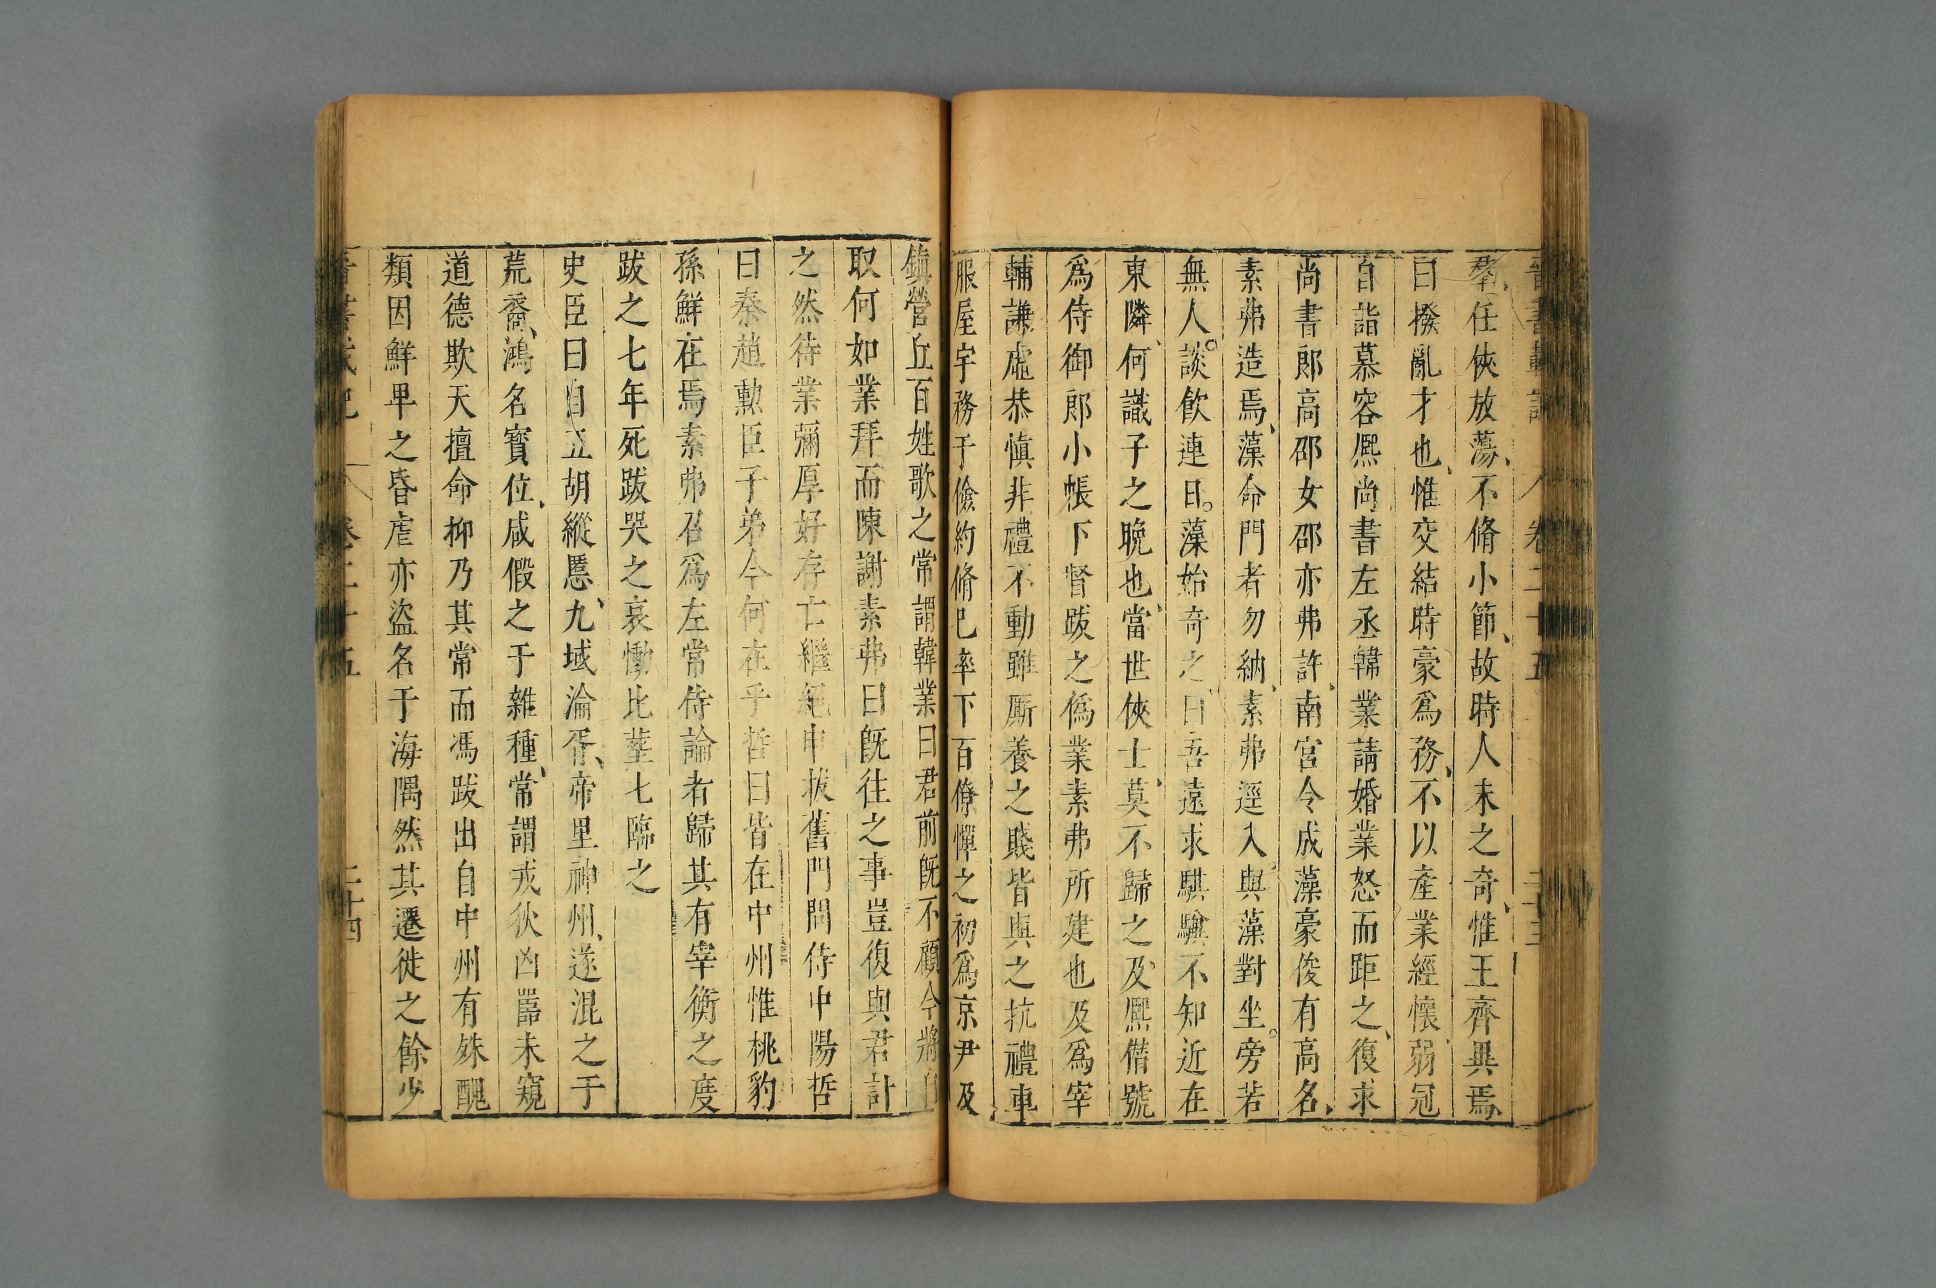 晉書載記 卷二十五 二十三
羣任俠放蕩不脩小節故時人未之奇惟王齊異焉
曰撥亂才也惟交結時豪爲務不以產業經懷弱冠
自詣慕容熙尚書左丞韓業請婚業怒而距之復求
尚書郎高邵女邵亦弗許南宮令成藻豪俊有高名
素弗造焉藻命門者勿納素弗逕入與藻對坐旁若
無人談飲連日藻始奇之曰吾遠求騏驥不知近在
東隣何識子之晚也當世俠士莫不歸之及熙僭號
爲侍御郎小帳下督跋之僞業素弗所建也及爲宰
輔謙虛恭愼非禮不動雖厮養之賤皆與之抗禮車
服屋宇務于儉約脩己率下百僚憚之初爲京尹及
鎮營丘百姓歌之常謂韓業曰君前旣不顧今將自
取何如業拜而陳謝素弗曰旣往之事豈復與君計
之然待業彌厚好存亡繼絕申拔舊門問侍中陽哲
曰秦趙勳臣子弟今何在乎哲曰皆在中州惟桃豹
孫鮮在焉素弗召爲左常侍論者歸其有宰衡之度
跋之七年死跋哭之哀慟比葬七臨之
史臣曰自五胡縱慝九域淪胥帝里神州遂混之于
荒裔鴻名寶位咸假之于雜種常謂戎狄凶嚚未窺
道德欺天擅命抑乃其常而馮跋出自中州有殊醜
類因鮮卑之昏虐亦盜名于海隅然其遷徙之餘少
晉書載記 卷二十五 二十四